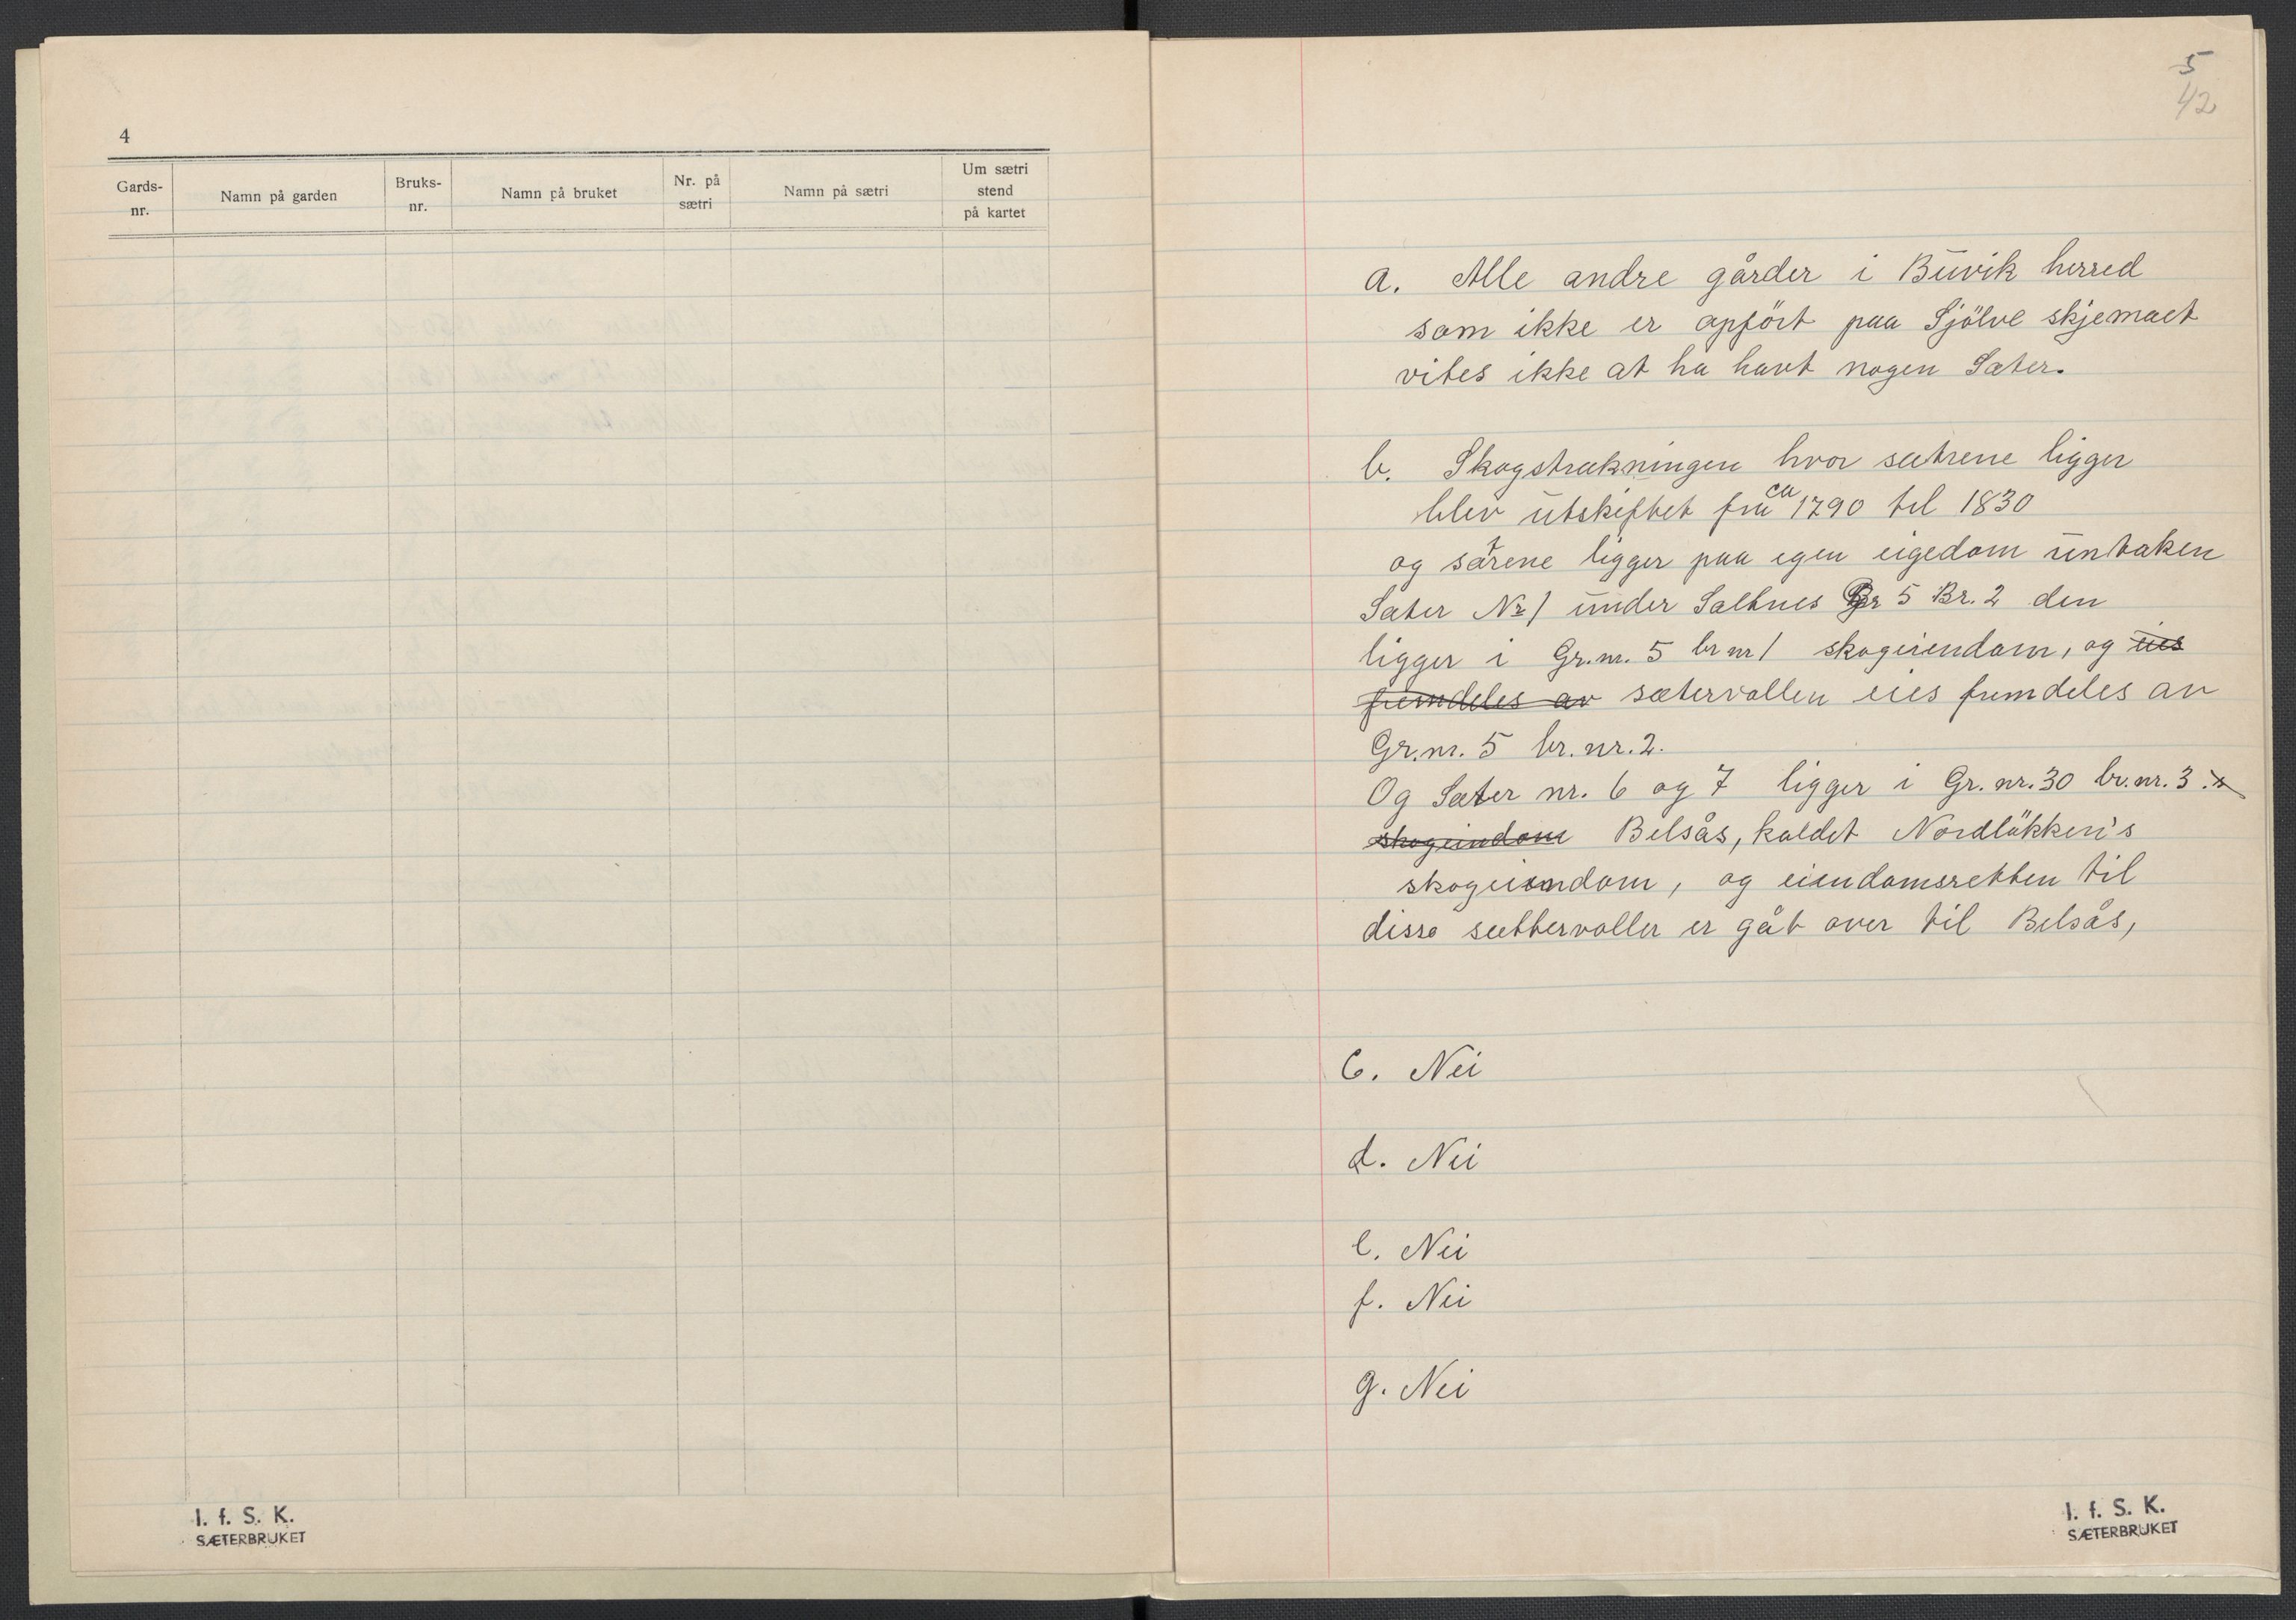 4
Gards-
nr.
Namn på garden
Bruks-
nr.
Namn på bruket
Nr. på
sætri
Namn på sætri
Um sætri
stend
på kartet
I. f. S. K.
SÆTERBRUKET
5
42
a. Alle andre gårder i Buvik herred
som ikke er opført paa Sjølve skjemaet
vites ikke at ha havt nogen Sæter.
b. Skogstrækningen hvor sætrene ligger
blev utskiftet fra ca 1790 til 1830
og sætrene ligger paa egen eigedom untaken
Sæter Nr 1 under Saltnes Gr 5 Br. 2 den
ligger i Gr. nr. 5 br nr 1 skogeiendom, og eies
fremdeles av sætervollen eies fremdeles av
Gr. nr. 5 br. nr. 2.
Og Sæter nr. 6 og 7 ligger i Gr. nr. 30 br. nr. 3.
skogeindom Belsås, kaldet Nordløkken's
skogeiendom, og eiendomsretten til
disse sættervoller er gåt over til Belsås,
C. Nei
d. Nei
e. Nei
f. Nei
g. Nei
I. f. S. K.
SÆTERBRUKET